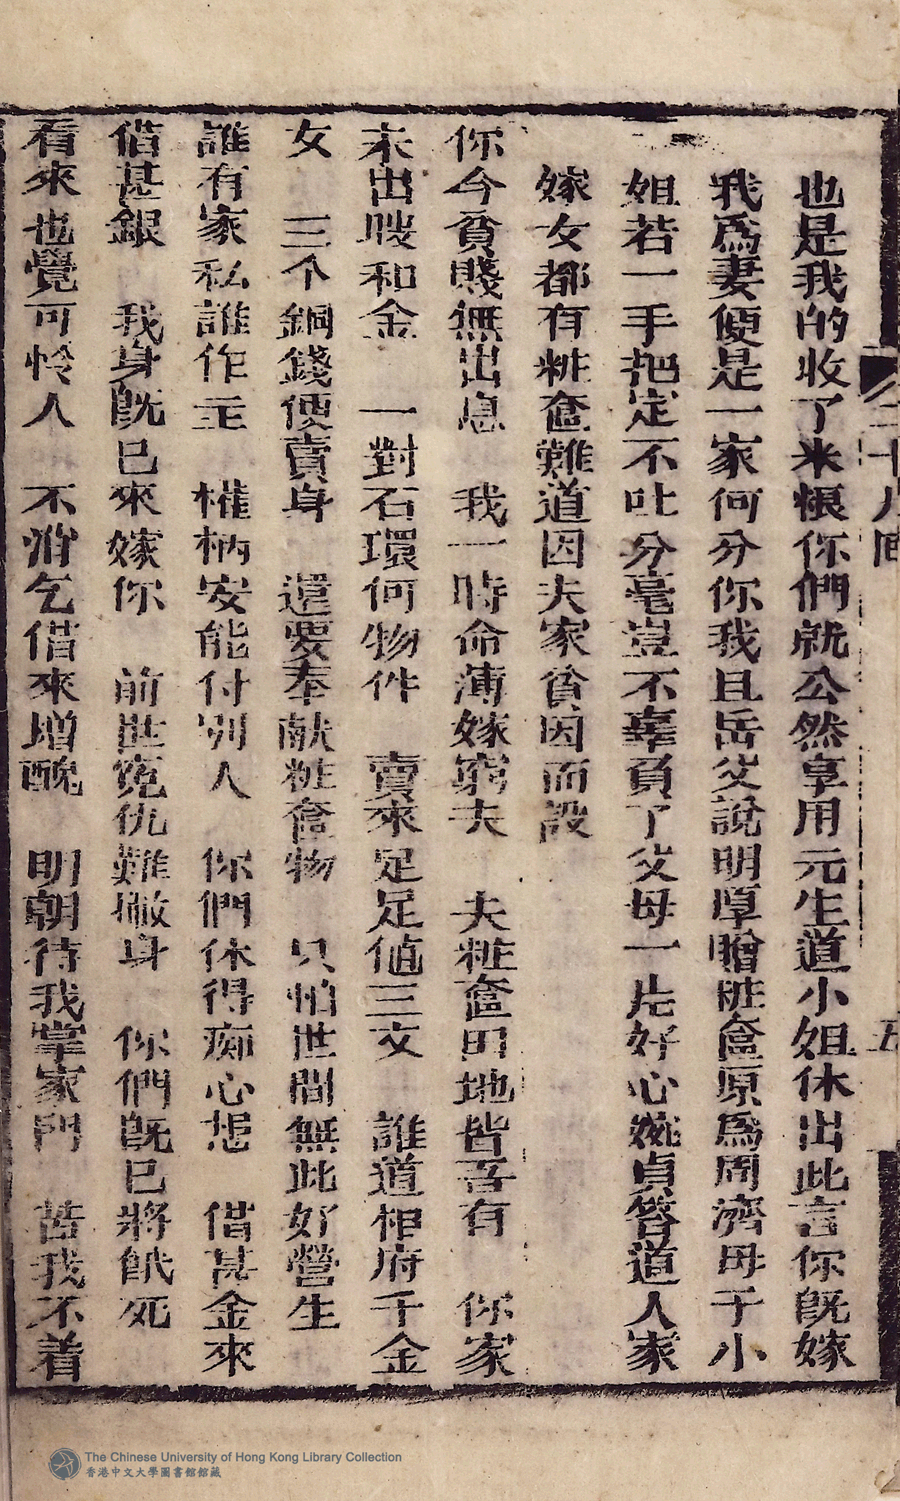 二十八回
五
也是我的收了米悵你們就公然享用元生道小姐休出此言你既嫁
我爲妻便是一家何分你我且岳父說明厚贈粧奩原爲周濟母子小
姐若一手把定不吐分毫豈不辜負了父母一片好心婉貞答道人家
嫁女都有粧奩難道因夫家貧因而設
你今貧賤無出息 我一時命薄嫁窮夫 夫粧奩田地皆吾有 你家
未出艘和金 一對石環何物件 賣來足足値三文 誰道相府千金
女 三个銅錢便賣身 還要奉献粧奩物 只怕世間無此好營生
誰有家私誰作主 權柄安能付别人 你們休得痴心想 借甚金來
借甚銀 我身旣已來嫁你 前世寃仇難撇身 你們既已將飢死
看來也覺可怜人 不消乞借來增醜 明朝待我掌家門 苦我不着
The Chinese University of Hong Kong Library Collection
香港中文大學圖書館館藏